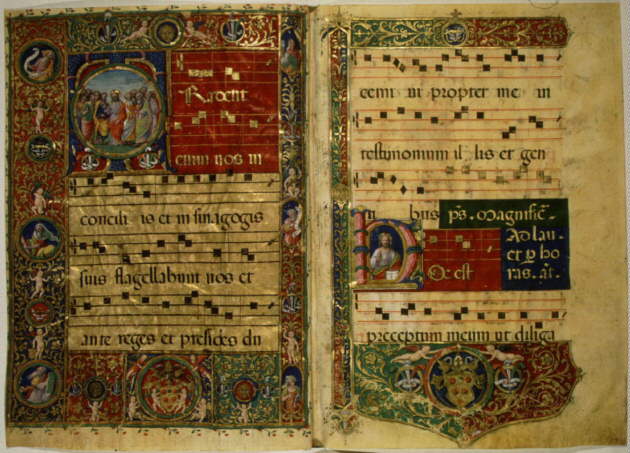 Radent
enim uos in
concili is et in sinagogis
suis flagellabunt uos et
ante reges et presides du
cemi ni propter me in
testimonium il lis et gen
ti bus ps. Magnific.
Ad lau-
et p ho
ras. at.
Hoc est
preceptum meum ut diliga